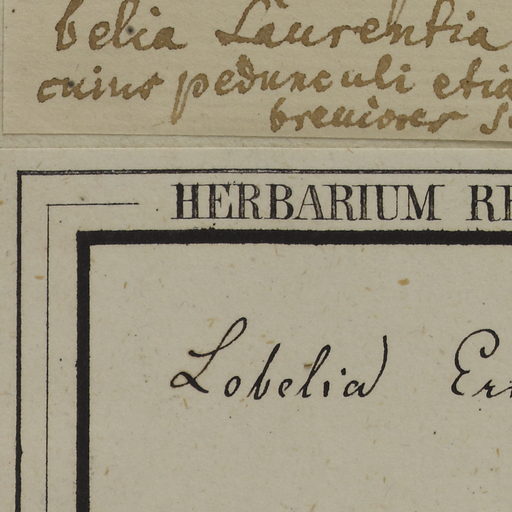 belia Laurentia
cuius pedunculi etia
breviores
HERBARIUM RE
Lobelia Er